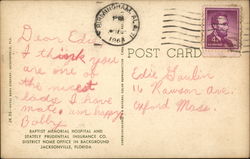 BIRMINGHAM, ALA.
1964
4¢
Dear Edie,
I think you
are one of
the nicest
lads I have
met. am happy
Bobby
POST CARD
Edie
11 Rawson Ave.
Oxford Mass.
BAPTIST MEMORIAL HOSPITAL AND
STATELY PRUDENTIAL INSURANCE CO.
DISTRICT HOME OFFICE IN BACKGROUND
JACKSONVILLE, FLORIDA